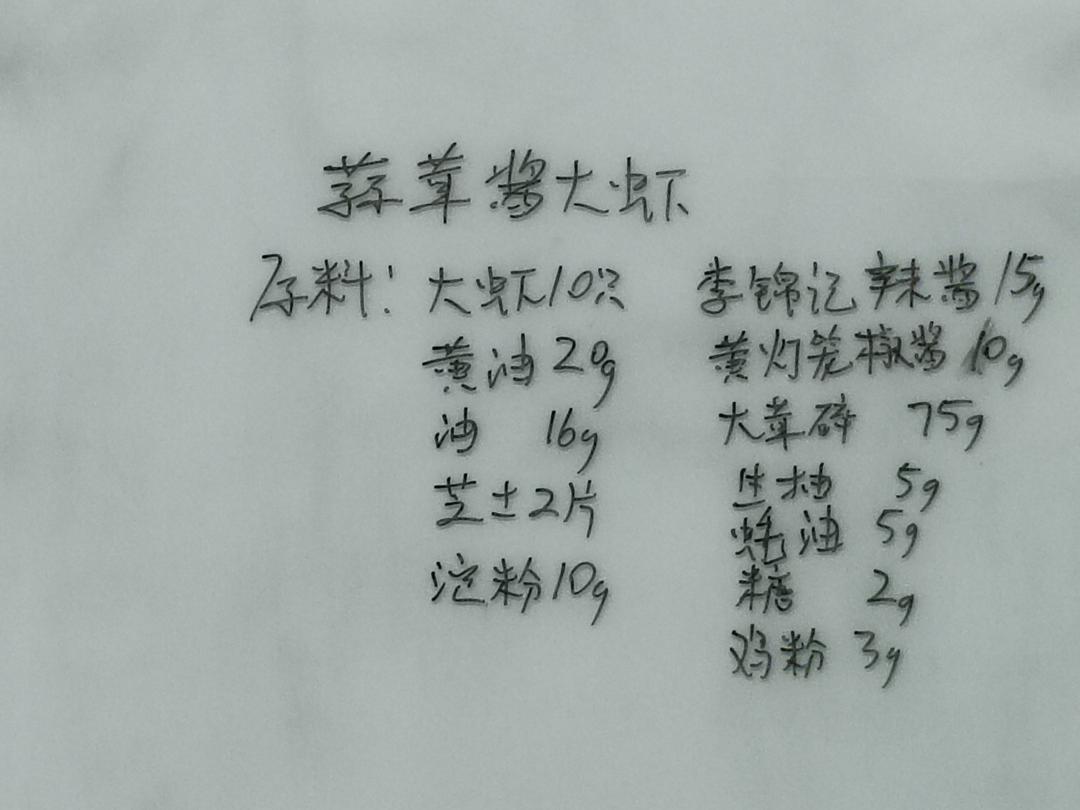 蒜茸酱大虾
原料：大虾10只 李锦记辣酱15g
黄油20g 黄灯笼椒酱10g
油 16g 大茸碎 75g
芝士2片 生抽 5g
蚝油 5g
淀粉10g 糖 2g
鸡粉 3g